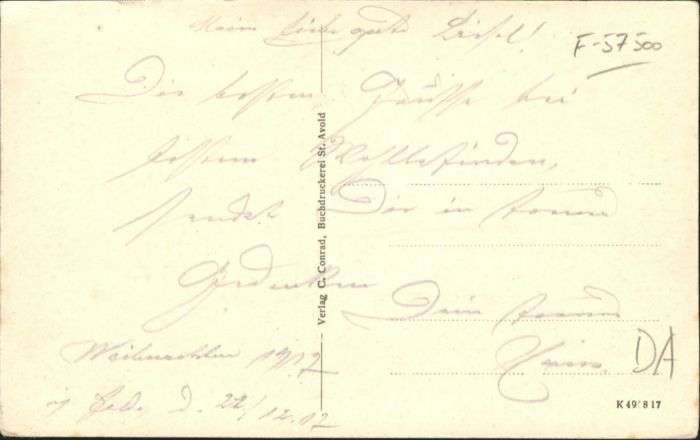 Mein liebe gute Liesel!
F-57500
Die besten Grüsse bei
bestem Wohlbefinden,
sendet Dir in treuem
Gedenken
Dein treuer
Weihnachten 1917
Heini.
DA
i/ Felde. d. 22/12.17
Verlag C. Conrad, Buchdruckerei St. Avold
K 49/8 17